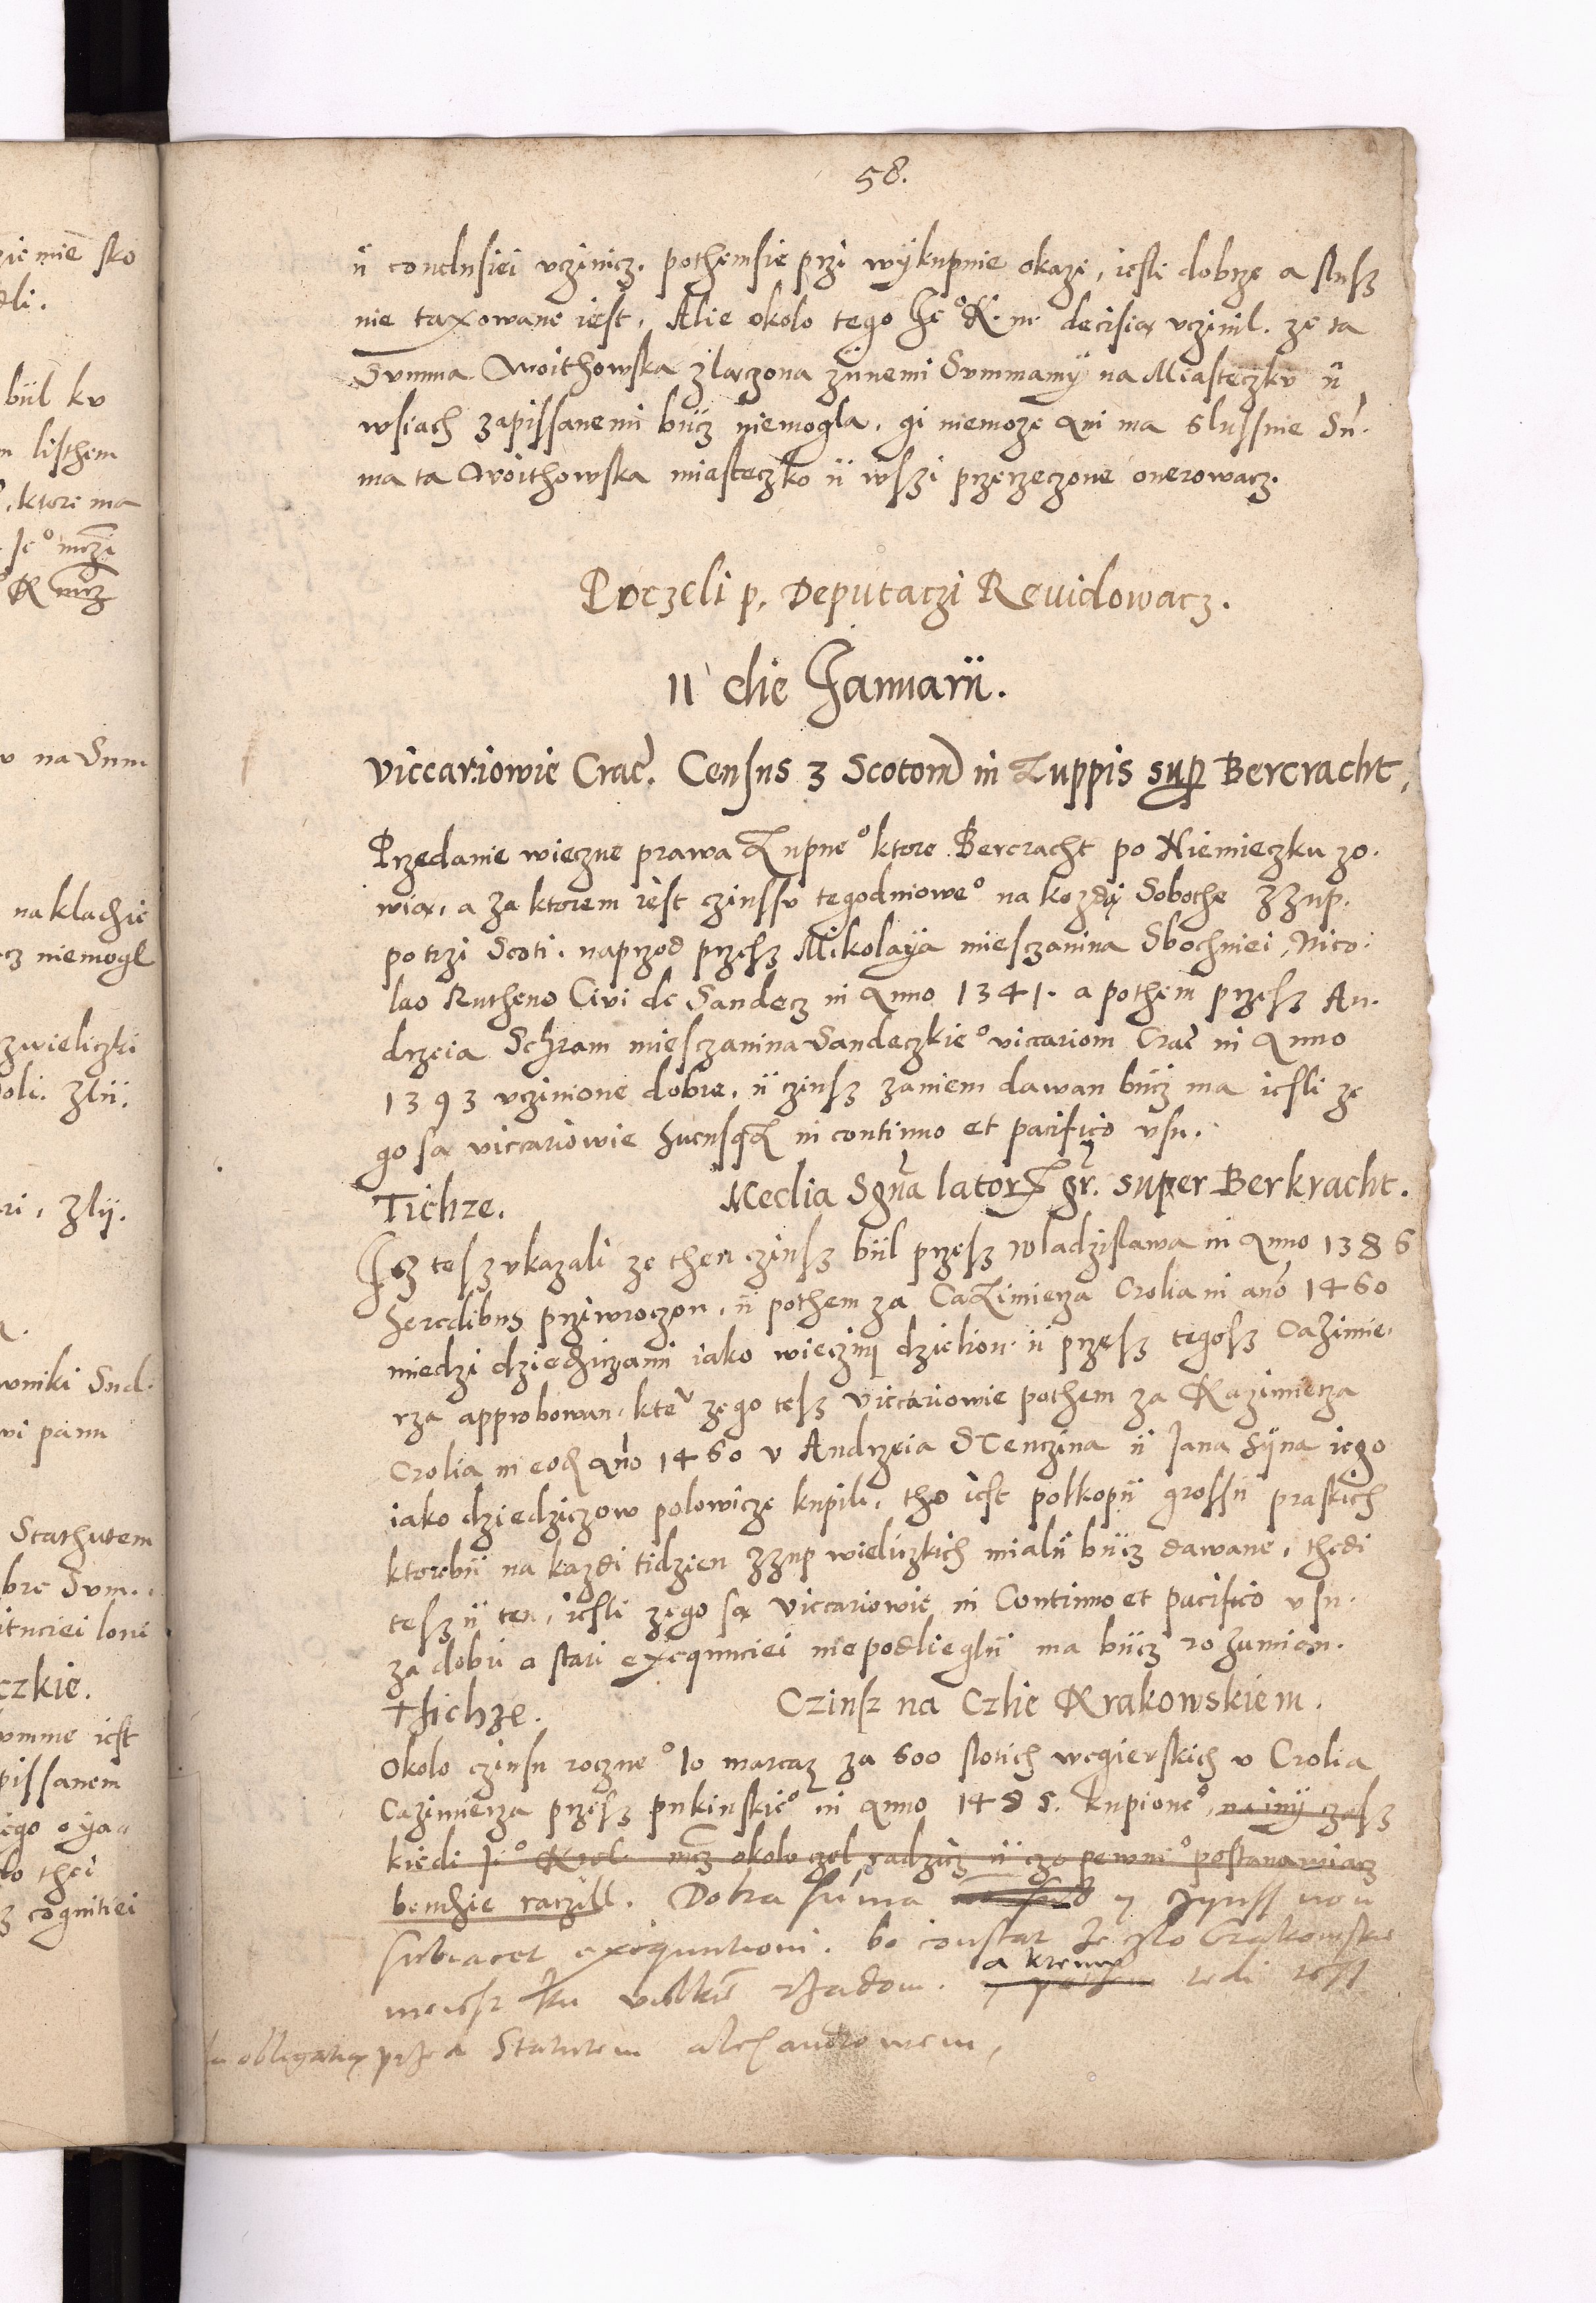 58.
ÿ conclusiei vczinicz. pothemsie przi wÿkupnie okaze, iesli dobrze a slusz
nie taxowane iest, Alie około tego Je° K. m. decisią vczinil. ze ta
Summa Woithowska złączona zÿnemi Summamÿ na Miasteczku ÿ
wsiach zapissanemi bÿcz niemogla. gi niemoze ani ma slussnie Sum.
ma ta Woithowska miasteczko ÿ wszi przerzeczone onerowacz.
Poczeli p. Deputaczi Reuidowacz.
11 die Januarii.
Viccariowie Crac. Census 3 Scotorum in Zuppis super Bercracht,
Przedanie wieczne prawa Zupne° ktore Bercracht po Niemieczku zo.
wią, a za ktorem iest czinssu tegodniowe° na kozdą Sobothe zzup.
po trzi Scoti. naprzod przesz Mikolaÿa miesczanina Sbochniei, Nico.
lao Rutheno Civi de Sandecz in Anno 1341. a pothem przesz An.
drzeia Schram miesczanina Sandeczkie° viccariom Crac in Anno
1393 vczinione dobre, ÿ czinsz zaniem dawan bÿcz ma iesli ze
go są viccariowie hucusqz in continuo et pacifico vsu.
Tichze. Media Sgna lator gr. super Berkracht.
Jsz tesz vkazali ze then czinsz bÿl przesz Wladzislawa in Anno 1386
heredibus przÿwroczon, ÿ pothem za Cazimierza Crolia in ano 1460
miedzi dziedziczami iako wiecznÿ dzielion. ÿ przesz tegosz Cazimie.
rza approbowan. kter zego tesz viccariowie pothem za Kazimierza
Crolia in eod Ano 1460 v Andrzeia STenczina ÿ Jana Sÿna iego
iako dziedziczow polowicze kupili, tho iest polkopÿ grossÿ praskich
ktorebÿ na kazdi tidzien zzup wieliczkich mialÿ bÿcz dawane, thedi
tesz ÿ ten, iesli zego są Viccariowie in Continuo et pacifico vsu.
za dobrÿ a stari exequuciei niepodlieglÿ ma bÿcz rozumian.
Thichze. Czinsz na Czlie Krakowskiem.
Okolo czinsu roczne° 10 marcaz za 600 slotich wegierskich v Crolia
Cazimierza przesz pukinskie° in Anno 1485. kupione°, na inÿ czasz
kiedi Je° Krol. mcz okolo czel radzicz ÿ czo pewne° postanawiacz
bendzie raczill. Dobra suma y czynss non
subiacet exequutioni. bo constat ze czlo Crakowskie
wielkiem rządom. a kremu tedi iesth
obligatią przed Statutem alexandrowem,